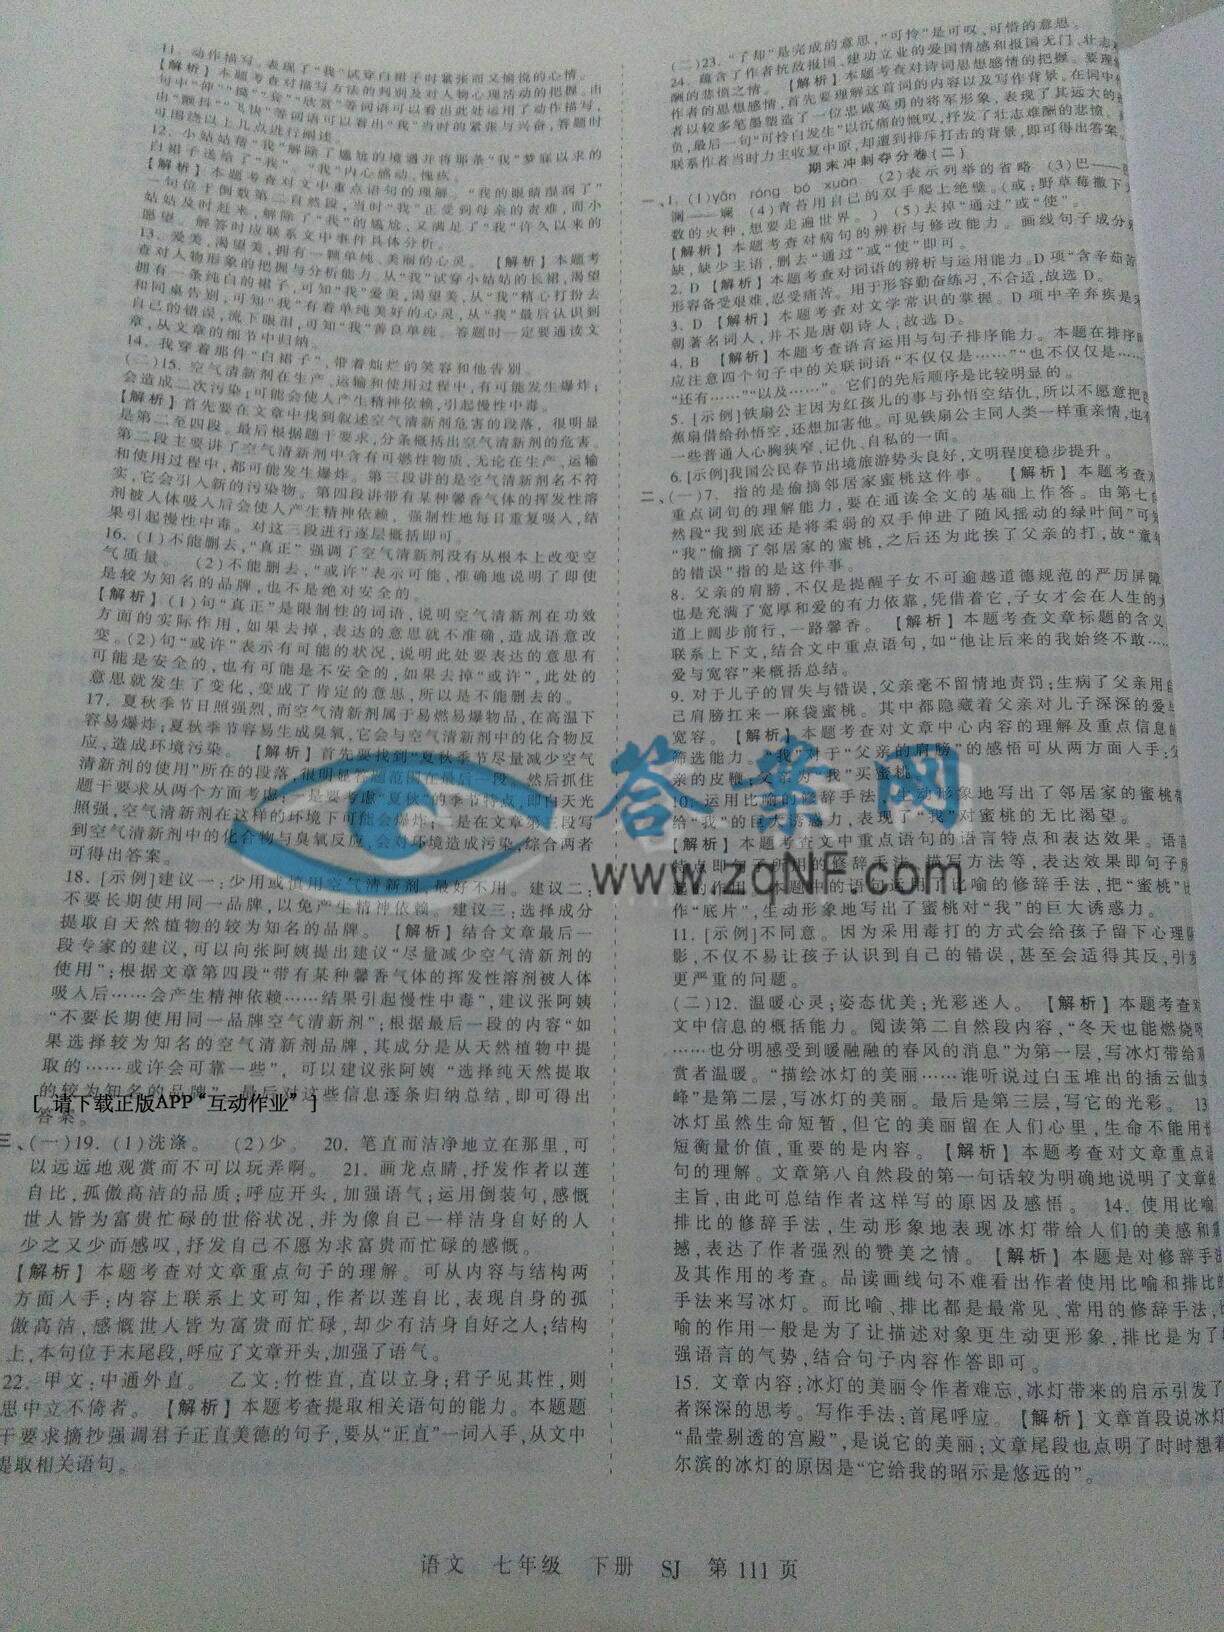 11. 动作描写。表现了“我”试穿白裙子时紧张而又愉悦的心情。
【解析】本题考查对描写方法的判别及对人物心理活动的把握。由
可围绕以上几点进行阐述。
12. 小姑姑帮“我”解除了尴尬的境遇并将那条“我”梦寐以求的
白裙子送给了“我”。“我”内心感动、愧疚。
【解析】本题考查对文中重点语句的理解。“我的眼睛湿润了”
一句位于倒数第二自然段,当时“我”正受到母亲的责难,而小
姑姑及时赶来,解除了“我”的尴尬,又满足了“我”许久以来的
愿望。解答时应联系文中事件具体分析。
13. 爱美,渴望美,拥有一颗单纯、美丽的心灵。 【解析】本题考
查对人物形象的把握与分析能力。从“我”试穿小姑姑的长裙,渴望
拥有一条纯白的裙子,可知“我”爱美,渴望美,从“我”精心打扮去
和同桌告别,可知“我”有着单纯美好的心灵,从“我”最后认识到
自己的错误,流下眼泪,可知“我”善良单纯。答题时一定要通读文
章,从文章的细节中归纳。
14. 我穿着那件“白裙子”,带着灿烂的笑容和他告别。
(二)15. 空气清新剂在生产、运输和使用过程中,有可能发生爆炸;
会造成二次污染;可能会使人产生精神依赖,引起慢性中毒。
【解析】首先要在文章中找到叙述空气清新剂危害的段落,很明显
是第二至四段。最后根据题干要求,分条概括出空气清新剂的危害。
第二段主要讲了空气清新剂中含有可燃性物质,无论在生产、运输
和使用过程中,都可能发生爆炸。第三段讲的是空气清新剂名不符
实,它会引入新的污染物。第四段讲带有某种馨香气体的挥发性溶
剂被人体吸入后会使人产生精神依赖,强制性地每日重复吸入,结
果引起慢性中毒。对这三段进行逐层概括即可。
16. (1)不能删去,“真正”强调了空气清新剂没有从根本上改变空
气质量。 (2)不能删去,“或许”表示可能,准确地说明了即使
是较为知名的品牌,也不是绝对安全的。
【解析】(1)句“真正”是限制性的词语,说明空气清新剂在功效
方面的实际作用,如果去掉,表达的意思就不准确,造成语意改
变。(2)句“或许”表示有可能的状况,说明此处要表达的意思有
可能是安全的,也有可能是不安全的,如果去掉“或许”,此处的
意思就发生了变化,变成了肯定的意思,所以是不能删去的。
17. 夏秋季节日照强烈,而空气清新剂属于易燃易爆物品,在高温下
容易爆炸;夏秋季节容易生成臭氧,它会与空气清新剂中的化合物反
应,造成环境污染。 【解析】首先要找到“夏秋季节尽量减少空气
清新剂的使用”所在的段落,很明显答题范围在最后一段。然后抓住
题干要求从两个方面考虑:一是要考虑“夏秋”的季节特点,即白天光
照强,空气清新剂在这样的环境下可能会爆炸;二是在文章第三段写
到空气清新剂中的化合物与臭氧反应,会对环境造成污染,综合两者
可得出答案。
18. [示例]建议一:少用或慎用空气清新剂,最好不用。建议二:
不要长期使用同一品牌,以免产生精神依赖。建议三:选择成分
提取自天然植物的较为知名的品牌。 【解析】结合文章最后一
段专家的建议,可以向张阿姨提出建议“尽量减少空气清新剂的
使用”;根据文章第四段“带有某种馨香气体的挥发性溶剂被人体
吸入后……会产生精神依赖……结果引起慢性中毒”,建议张阿姨
“不要长期使用同一品牌空气清新剂”;根据最后一段的内容“如
果选择较为知名的空气清新剂品牌,其成分是从天然植物中提
取的……或许会可靠一些”,可以建议张阿姨“选择纯天然提取
的较为知名的品牌”。最后对这些信息逐条归纳总结,即可得出
[ 请下载正版APP“互动作业” ]
答案。
三、(一)19. (1)洗涤。 (2)少。 20. 笔直而洁净地立在那里,可
以远远地观赏而不可以玩弄啊。 21. 画龙点睛,抒发作者以莲
自比,孤傲高洁的品质;呼应开头,加强语气;运用倒装句,感慨
世人皆为富贵忙碌的世俗状况,并为像自己一样洁身自好的人
少之又少而感叹,抒发自己不愿为求富贵而忙碌的感慨。
【解析】本题考查对文章重点句子的理解。可从内容与结构两
方面入手:内容上联系上文可知,作者以莲自比,表现自身的孤
傲高洁,感慨世人皆为富贵而忙碌,却少有洁身自好之人;结构
上,本句位于末尾段,呼应了文章开头,加强了语气。
22. 甲文:中通外直。 乙文:竹性直,直以立身;君子见其性,则
思中立不倚者。 【解析】本题考查提取相关语句的能力。本题题
干要求摘抄强调君子正直美德的句子,要从“正直”一词入手,从文中
提取相关语句。
(二)23. “了却”是完成的意思,“可怜”是可叹、可惜的意思。
24. 蕴含了作者抗敌报国、建功立业的爱国情感和报国无门、壮志难
酬的悲愤之情。 【解析】本题考查对诗词思想感情的把握。要理解
作者的思想感情,首先要理解这首词的内容以及写作背景。在词中作
者以较多笔墨塑造了一位忠诚英勇的将军形象,表现了其远大的抱
负,最后一句“可怜白发生”以沉痛的慨叹,抒发了壮志难酬的悲愤。
联系作者当时力主收复中原,却遭到排斥打击的背景,即可得出答案。
期末冲刺夺分卷(二)
一、1. (1)yān róng bó xuàn (2)表示列举的省略 (3)巴——
澜——斓 (4)青苔用自己的双手爬上绝壁。(或:野草莓撒下
数的火种,想要走遍世界。) (5)去掉“通过”或“使”。
【解析】本题考查对病句的辨析与修改能力。画线句子成分
缺,缺少主语,删去“通过”或“使”即可。
2. D 【解析】本题考查对词语的辨析与运用能力。D项“含辛茹苦
形容备受艰难,忍受痛苦。用于形容勤奋练习,不合适,故选D。
3. D 【解析】本题考查对文学常识的掌握。D项中辛弃疾是
朝著名词人,并不是唐朝诗人,故选D。
4. B 【解析】本题考查语言运用与句子排序能力。本题在排序
应注意四个句子中的关联词语“不仅仅是……”“也不仅仅是……”
“还有……”“以及……”。它们的先后顺序是比较明显的。
5. [示例]铁扇公主因为红孩儿的事与孙悟空结仇,所以不愿意把
蕉扇借给孙悟空,还想加害他。可见铁扇公主同人类一样重亲情,也
一些普通人心胸狭窄、记仇、自私的一面。
6. [示例]我国公民春节出境旅游势头良好,文明程度稳步提升。
二、(一)7. 指的是偷摘邻居家蜜桃这件事。 【解析】本题考查
重点词句的理解能力,要在通读全文的基础上作答。由第七
然段“我到底还是将柔弱的双手伸进了随风摇动的绿叶间”可
“我”偷摘了邻居家的蜜桃,之后还为此挨了父亲的打,故“童年
的错误”指的是这件事。
8. 父亲的肩膀,不仅是提醒子女不可逾越道德规范的严厉屏障
也是充满了宽厚和爱的有力依靠,凭借着它,子女才会在人生的
道上阔步前行,一路馨香。 【解析】本题考查文章标题的含义
联系上下文,结合文中重点语句,如“他让后来的我始终不敢……
爱与宽容”来概括总结。
9. 对于儿子的冒失与错误,父亲毫不留情地责罚;生病了父亲用
己肩膀扛来一麻袋蜜桃。其中都隐藏着父亲对儿子深深的爱与
宽容。 【解析】本题考查对文章中心内容的理解及重点信息
筛选能力。“我”对于“父亲的肩膀”的感悟可从两方面入手:
亲的皮鞭;父亲为“我”买蜜桃。
10. 运用比喻的修辞手法,生动形象地写出了邻居家的蜜桃带
给“我”的巨大诱惑力,表现了“我”对蜜桃的无比渴望。
【解析】本题考查文中重点语句的语言特点和表达效果。语言
特点即句子所用的修辞手法、描写方法等,表达效果即句子
起的作用。本题中的语句运用了比喻的修辞手法,把“蜜桃”比
作“底片”,生动形象地写出了蜜桃对“我”的巨大诱惑力。
11. [示例]不同意。因为采用毒打的方式会给孩子留下心理阴
影,不仅不易让孩子认识到自己的错误,甚至会适得其反,引发
更严重的问题。
(二)12. 温暖心灵;姿态优美;光彩迷人。 【解析】本题考查对
文中信息的概括能力。阅读第二自然段内容,“冬天也能燃烧
……也分明感受到暖融融的春风的消息”为第一层,写冰灯带给观
赏者温暖。“描绘冰灯的美丽……谁听说过白玉堆出的插云仙女
峰”是第二层,写冰灯的美丽。最后是第三层,写它的光彩。 13.
冰灯虽然生命短暂,但它的美丽留在人们心里,生命不能用长
短衡量价值,重要的是内容。 【解析】本题考查对文章重点语
句的理解。文章第八自然段的第一句话较为明确地说明了文章的
主旨,由此可总结作者这样写的原因及感悟。 14. 使用比喻、
排比的修辞手法,生动形象地表现冰灯带给人们的美感和震
撼,表达了作者强烈的赞美之情。 【解析】本题是对修辞手法
及其作用的考查。品读画线句不难看出作者使用比喻和排比的
手法来写冰灯。而比喻、排比都是最常见、常用的修辞手法,比
喻的作用一般是为了让描述对象更生动更形象,排比是为了增
强语言的气势,结合句子内容作答即可。
15. 文章内容:冰灯的美丽令作者难忘,冰灯带来的启示引发了
者深深的思考。写作手法:首尾呼应。 【解析】文章首段说冰灯
“晶莹剔透的宫殿”,是说它的美丽;文章尾段也点明了时时想着
尔滨的冰灯的原因是“它给我的昭示是悠远的”。
答案网
www.zqNF.com
语文 七年级 下册 SJ 第111页